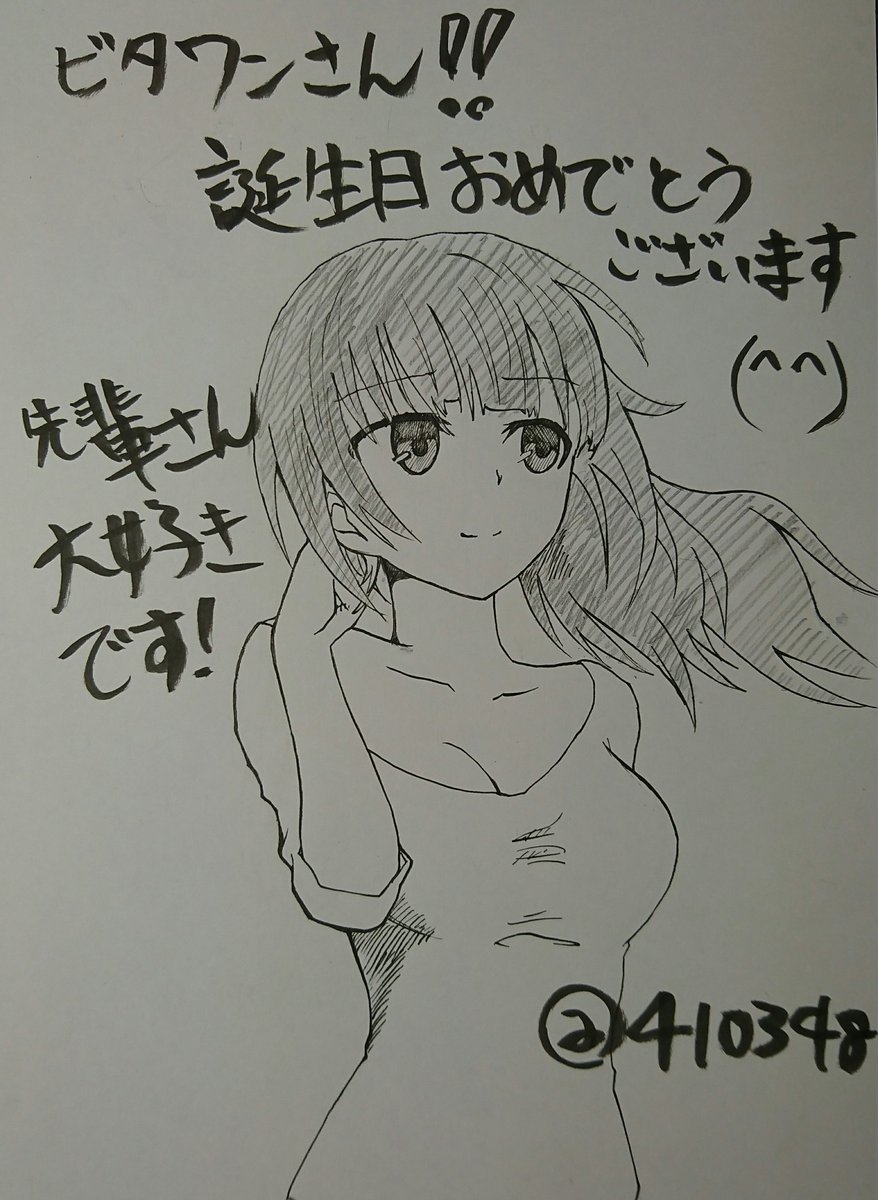 ビタワンさん!!
誕生日おめでとう
ございます
(^^)
先輩さん
大好き
です!
@410348